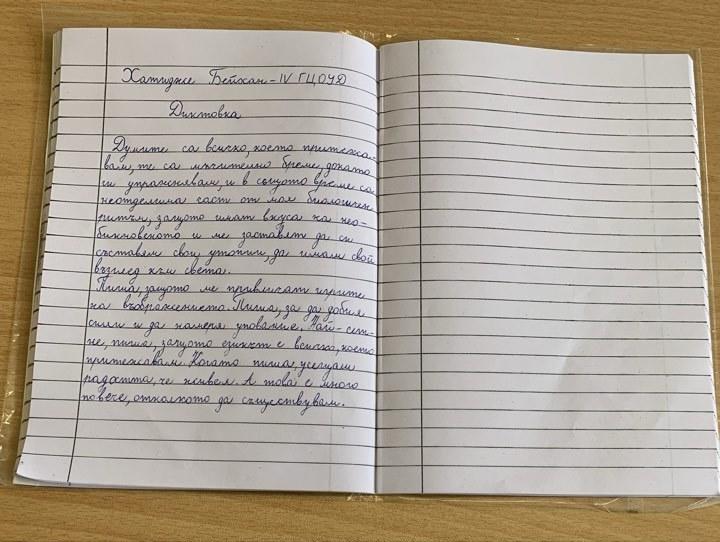 Хатидже Бейхан - IV ГЦОУД
Диктовка
Думите са всичко, което притежа-
вам, те са мъчително бреме, докато
ги упражнявам, и в същото време са
неотделима част от моя биологичен
ритъм, защото имат вкуса на нео-
бикновеното и ме заставят да си
съставям свои утопии, да имам свой
възглед към света.
Пиша, защото ме привличат игрите
на въображението. Пиша, за да добия
сили и да намеря упование. Най-сет-
не, пиша, защото езикът е всичко, което
притежавам. Когато пиша, усещам
радостта, че живея. А това е много
повече, отколкото да съществувам.